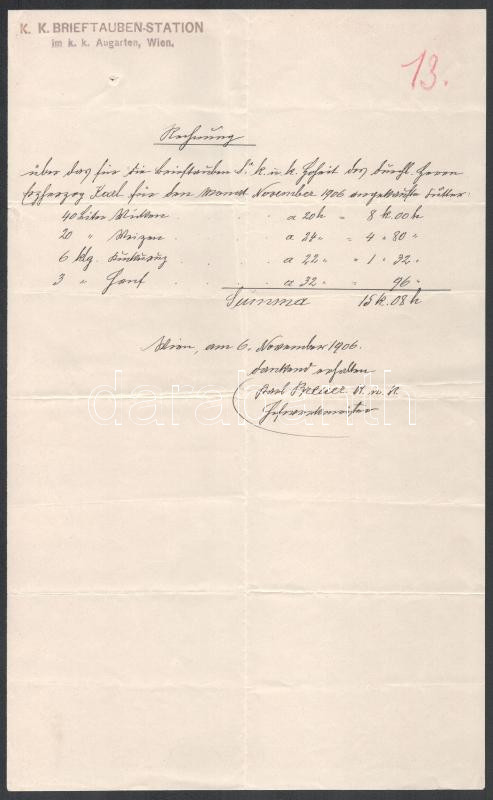 K. K. BRIEFTAUBEN-STATION
im k. k. Augarten, Wien.
13.
Rechnung
über das für die Brieftauben Sr. k. u. k. Hoheit des durchl. Herrn
Erzherzog Karl für den Monat November 1906 angekaufte Futter.
40 Liter Wicken . . . a 20h = 8 k. 00h
20 " Weizen . . . a 24 " = 4 " 80 "
6 kg. Kukuruz . . a 22 " = 1 " 32 "
3 " Hanf . . . a 32 " = 96 "
Summa 15 k. 08 h
Wien, am 6. November 1906.
dankend erhalten
Karl K. u. K.
darabanth